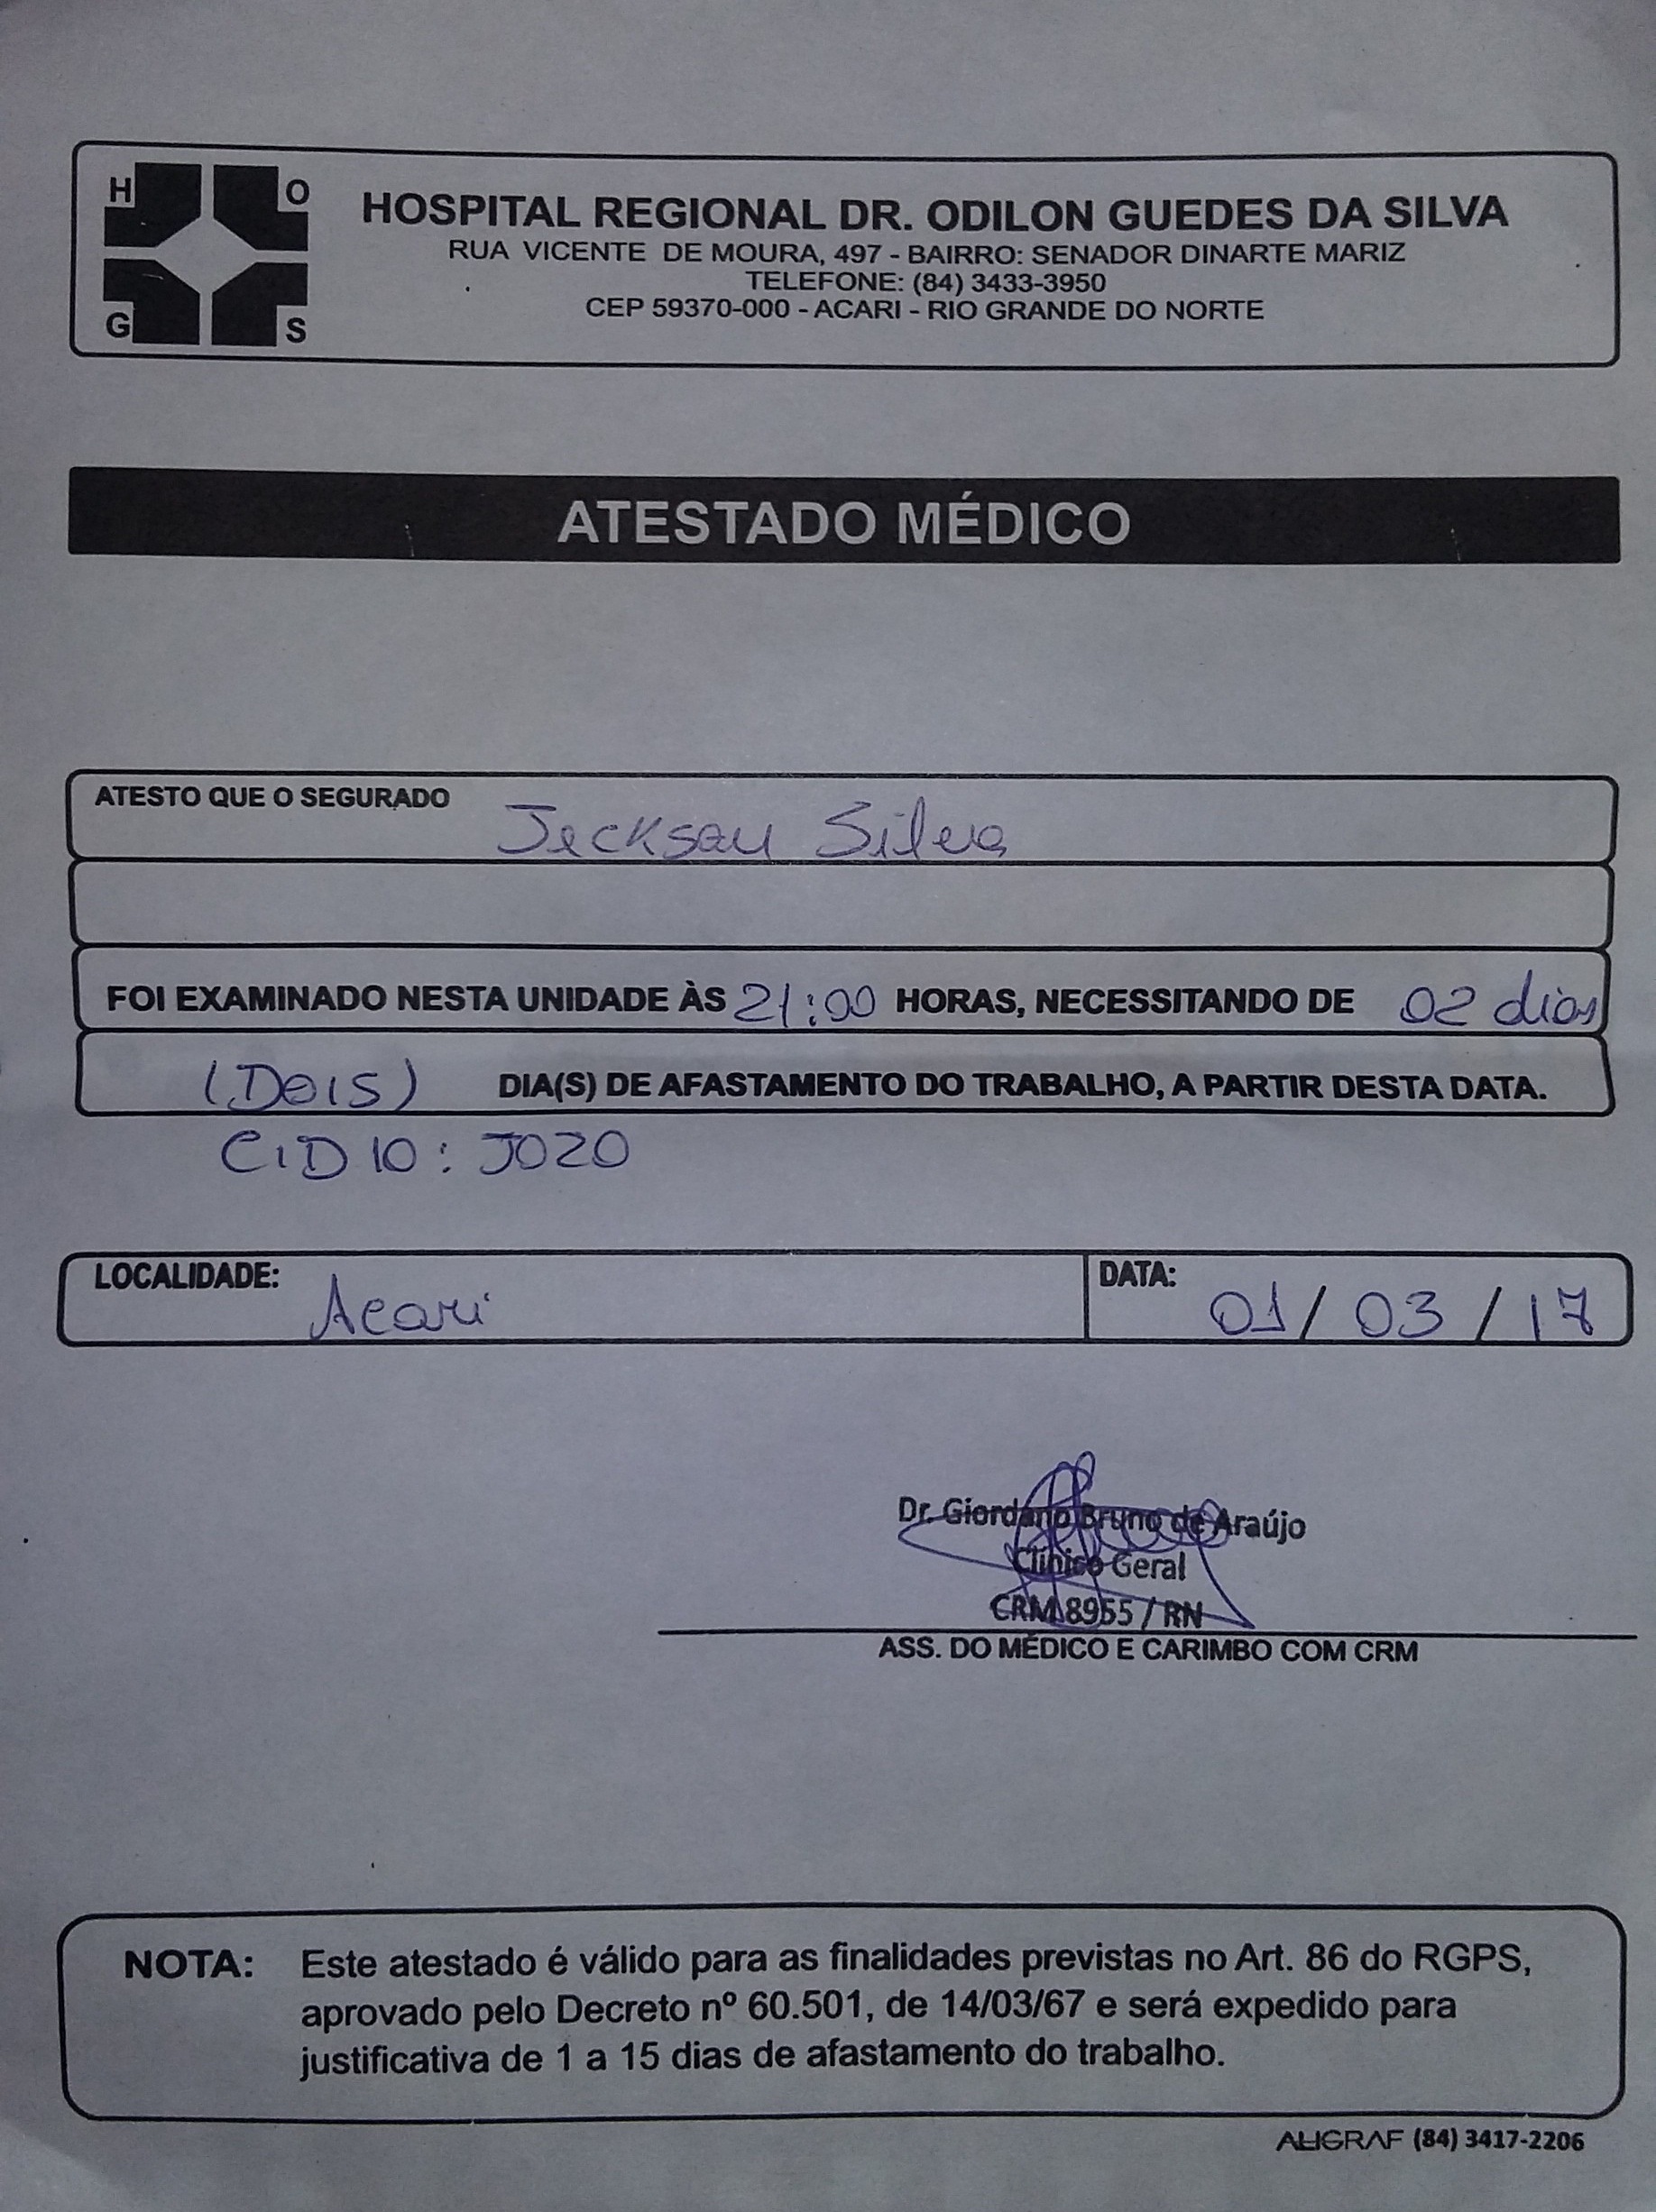 H O
G S
HOSPITAL REGIONAL DR. ODILON GUEDES DA SILVA
RUA VICENTE DE MOURA, 497 - BAIRRO: SENADOR DINARTE MARIZ
TELEFONE: (84) 3433-3950
CEP 59370-000 - ACARI - RIO GRANDE DO NORTE
ATESTADO MÉDICO
ATESTO QUE O SEGURADO Jeckson Silva
FOI EXAMINADO NESTA UNIDADE ÀS 21:00 HORAS, NECESSITANDO DE 02 dias
(DOIS) DIA(S) DE AFASTAMENTO DO TRABALHO, A PARTIR DESTA DATA.
CID 10: J020
LOCALIDADE: Acari DATA: 01/03/17
Dr. Giordano Bruno de Araújo
Clínico Geral
CRM 8955 / RN
ASS. DO MÉDICO E CARIMBO COM CRM
NOTA: Este atestado é válido para as finalidades previstas no Art. 86 do RGPS,
aprovado pelo Decreto nº 60.501, de 14/03/67 e será expedido para
justificativa de 1 a 15 dias de afastamento do trabalho.
(84) 3417-2206